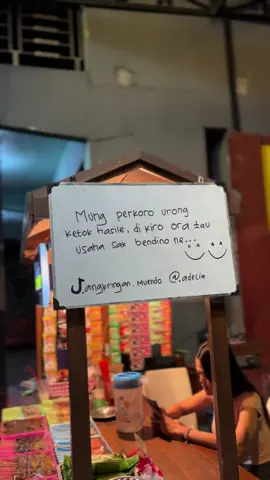 Mung perkoro urong
ketok hasile, di kiro ora tau
usaha sak bendino ne...
angkringan. Muendo @.adelia